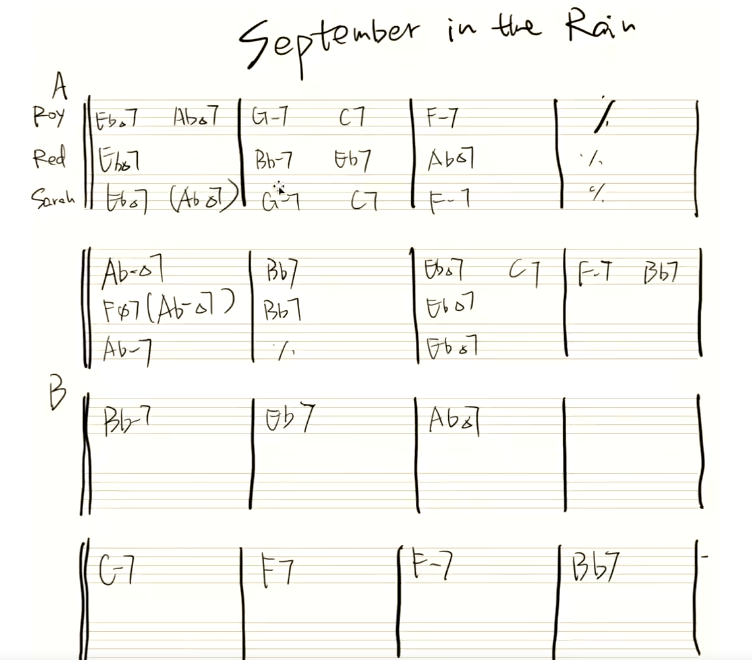 September in the Rain
A
Roy EbΔ7 AbΔ7 G-7 C7 F-7 ٪
Red EbΔ7 Bb-7 Eb7 AbΔ7 ٪
Sarah EbΔ7 (AbΔ7) G-7 C7 F-7 ٪
Ab-Δ7 Bb7 EbΔ7 C7 F-7 Bb7
Fø7 (Ab-Δ7) Bb7 EbΔ7
Ab-7 ٪ EbΔ7
B
Bb-7 Eb7 AbΔ7
C-7 F7 F-7 Bb7